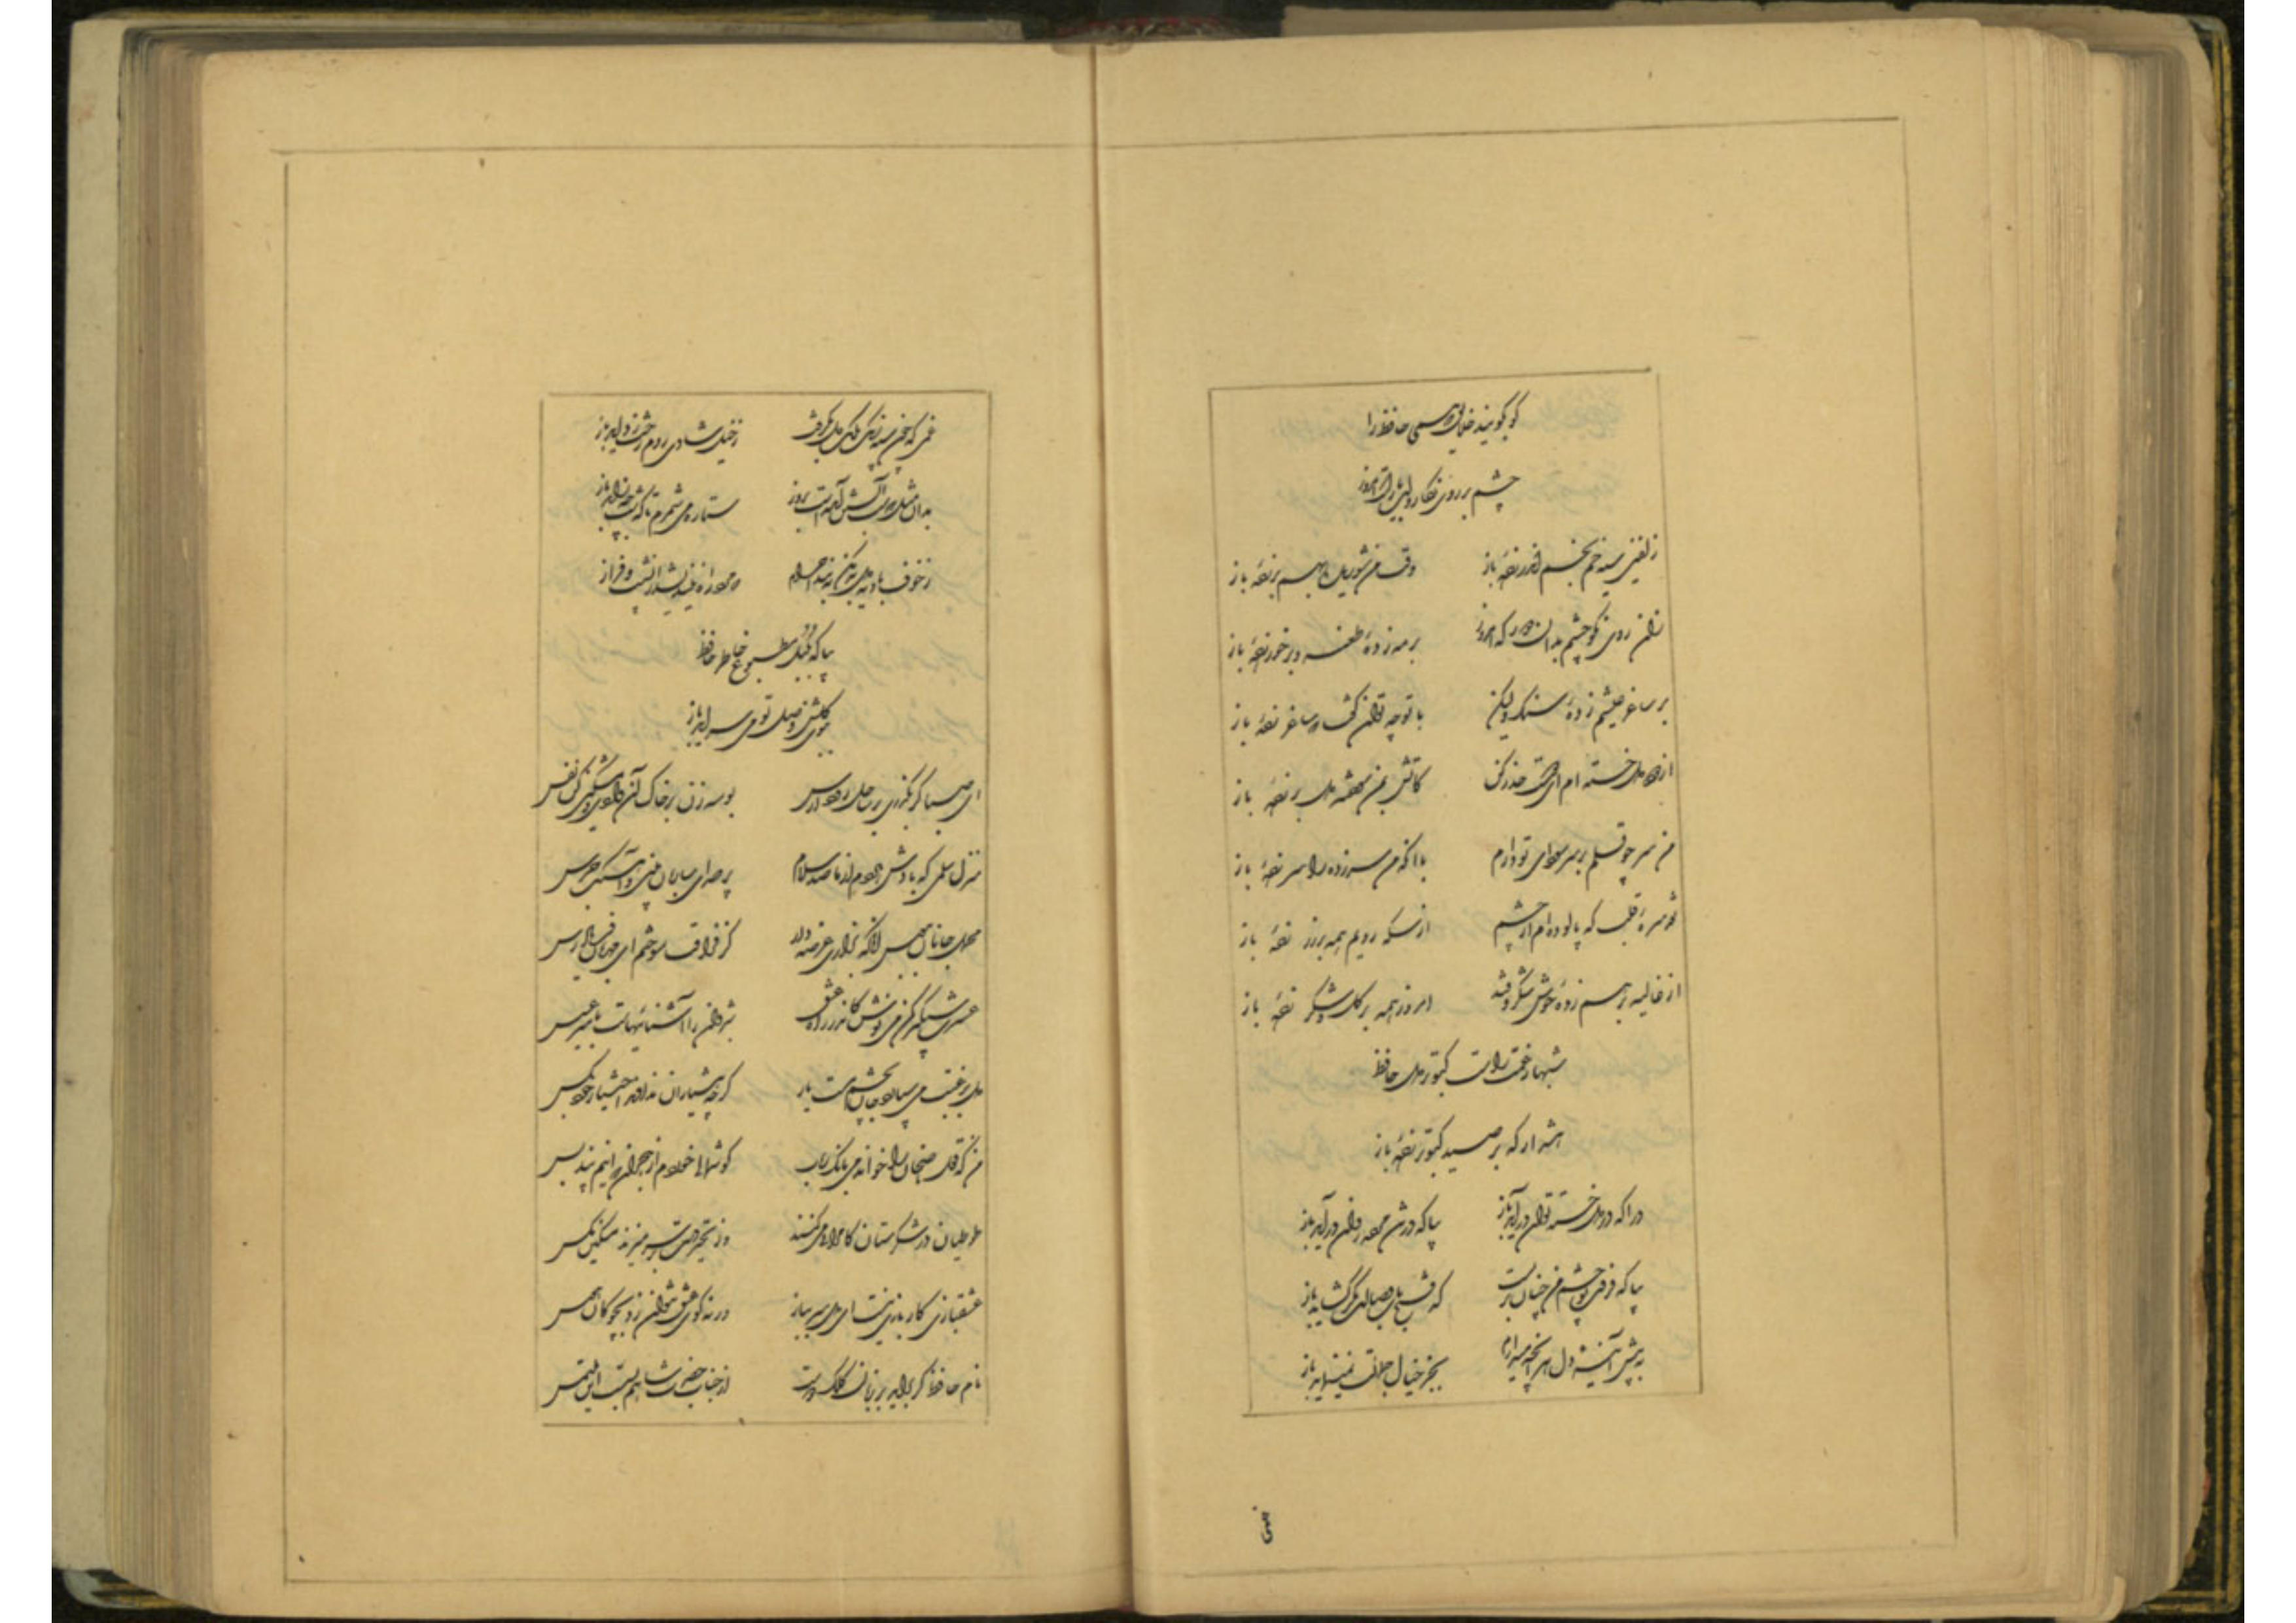 چشم بر روی نگار و لب یار است امروز
زلفین سیه خم بخم اندر زدهٔ باز وقت من شوریده بهم بر زدهٔ باز
زان روی نکو چشم بدان دور که امروز بر مه زدهٔ طعنه و بر خور زدهٔ باز
بر ساغر عیشم زدهٔ سنگ ولیکن با تو چه توان گفت که ساغر زدهٔ باز
از دود دل خسته ام ای دوست حذر کن کاتش بمن سوخته دل بر زدهٔ باز
من سر چو قلم بر سر سودای تو دارم با آنکه من سرزده را سر زدهٔ باز
قلب که پالوده ام از چشم از سکه رویم همه بر زر زدهٔ باز
از غالیه بر سیم زدهٔ خوش شکر و قند امروز همه بر گل و شکر زدهٔ باز
شهباز غمت راست کبوتر دل حافظ
هشدار که بر صید کبوتر زدهٔ باز
درآ که در دل خسته توان درآید باز بیا که در تن مرده روان درآید باز
بیا که فرقت تو چشم من چنان بربست که فتح باب وصالت مگر گشاید باز
به پیش آینهٔ دل هر آنچه میدارم بجز خیال جمالت نمینماید باز
غمی که چون سپه زنگ ملک دل بگرفت ز خیل شادی روم رخت زداید باز
بدان مثل که شب آبستن آمدست بروز ستاره می شمرم تا که شب چه زاید باز
ز خوف بادیه دل بد مکن ببند احرام که مرد راه نیندیشد از نشیب و فراز
بیا که بلبل مطبوع خاطر حافظ
ببوی گلشن وصل تو می سراید باز
ای صبا گر بگذری بر ساحل رود ارس بوسه زن بر خاک آن وادی و مشکین کن نفس
منزل سلمی که بادش هر دم از ما صد سلام پر صدای ساربان بینی و آهنگ جرس
محمل جانان ببوس آنگه بزاری عرضه دار کز فراقت سوختم ای مهربان فریاد رس
عشرت شبگیر کن می نوش کاندر راه عشق شبروان را آشنائیهاست با میر عسس
دل برغبت می سپارد جان بچشم مست یار گرچه هشیاران ندادند اختیار خود بکس
من که قول ناصحان را خواندمی بانگ رباب گوشمالی خوردم از هجران که اینم پند بس
طوطیان در شکرستان کامرانی می کنند وز تحیر دست بر سر میزند مسکین مگس
عشقبازی کار بازی نیست ای دل سر بباز ورنه گوی عشق نتوان زد بچوگان هوس
نام حافظ گر برآید بر زبان کلک دوست از جناب حضرت شاهم بس است این ملتمس